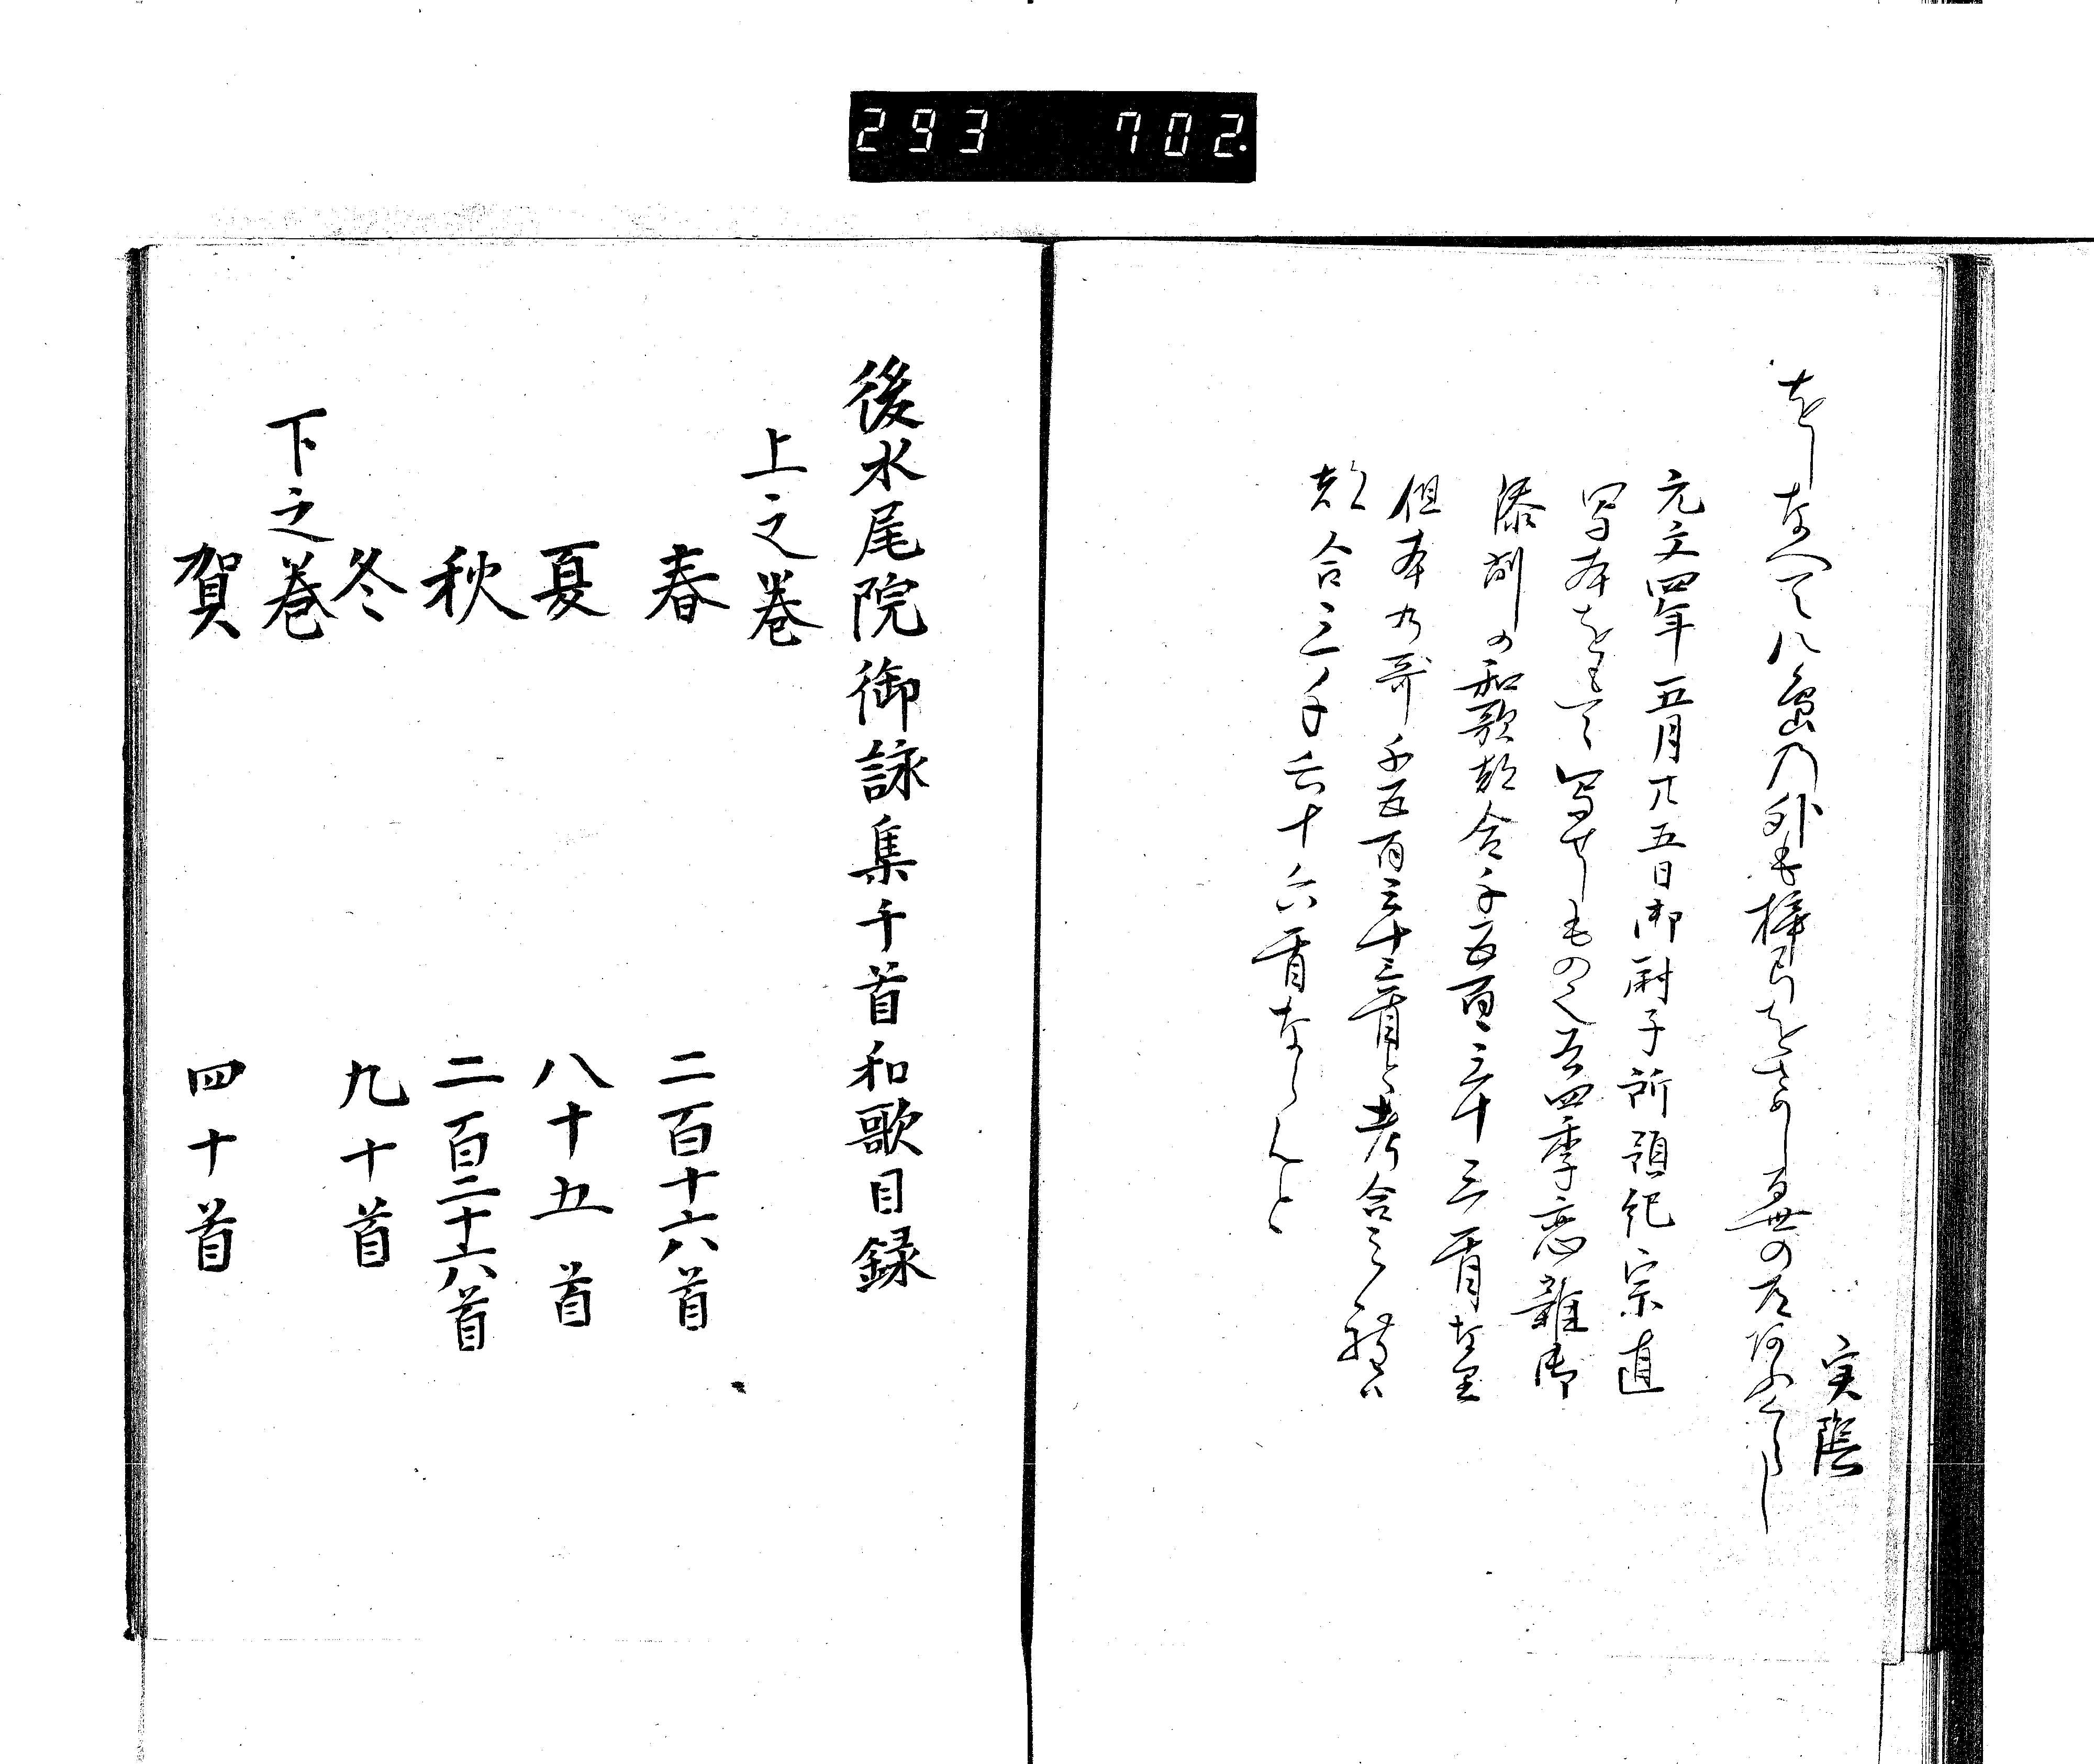 293 702.
実陰
をしなへて八嶋乃外も樟弓をさめし百世の
元文四年五月廿五日御厨子所預紀宗直
写本をもて写せしもの也 四季恋雑御
添削の和歌都合千五百三十三首な里
但本乃哥千五百三十三首と考合之
都合三千六十六首ならんと
後水尾院御詠集千首和歌目録
上之巻
春 二百十六首
夏 八十五首
秋 二百二十六首
冬 九十首
下之巻
賀 四十首